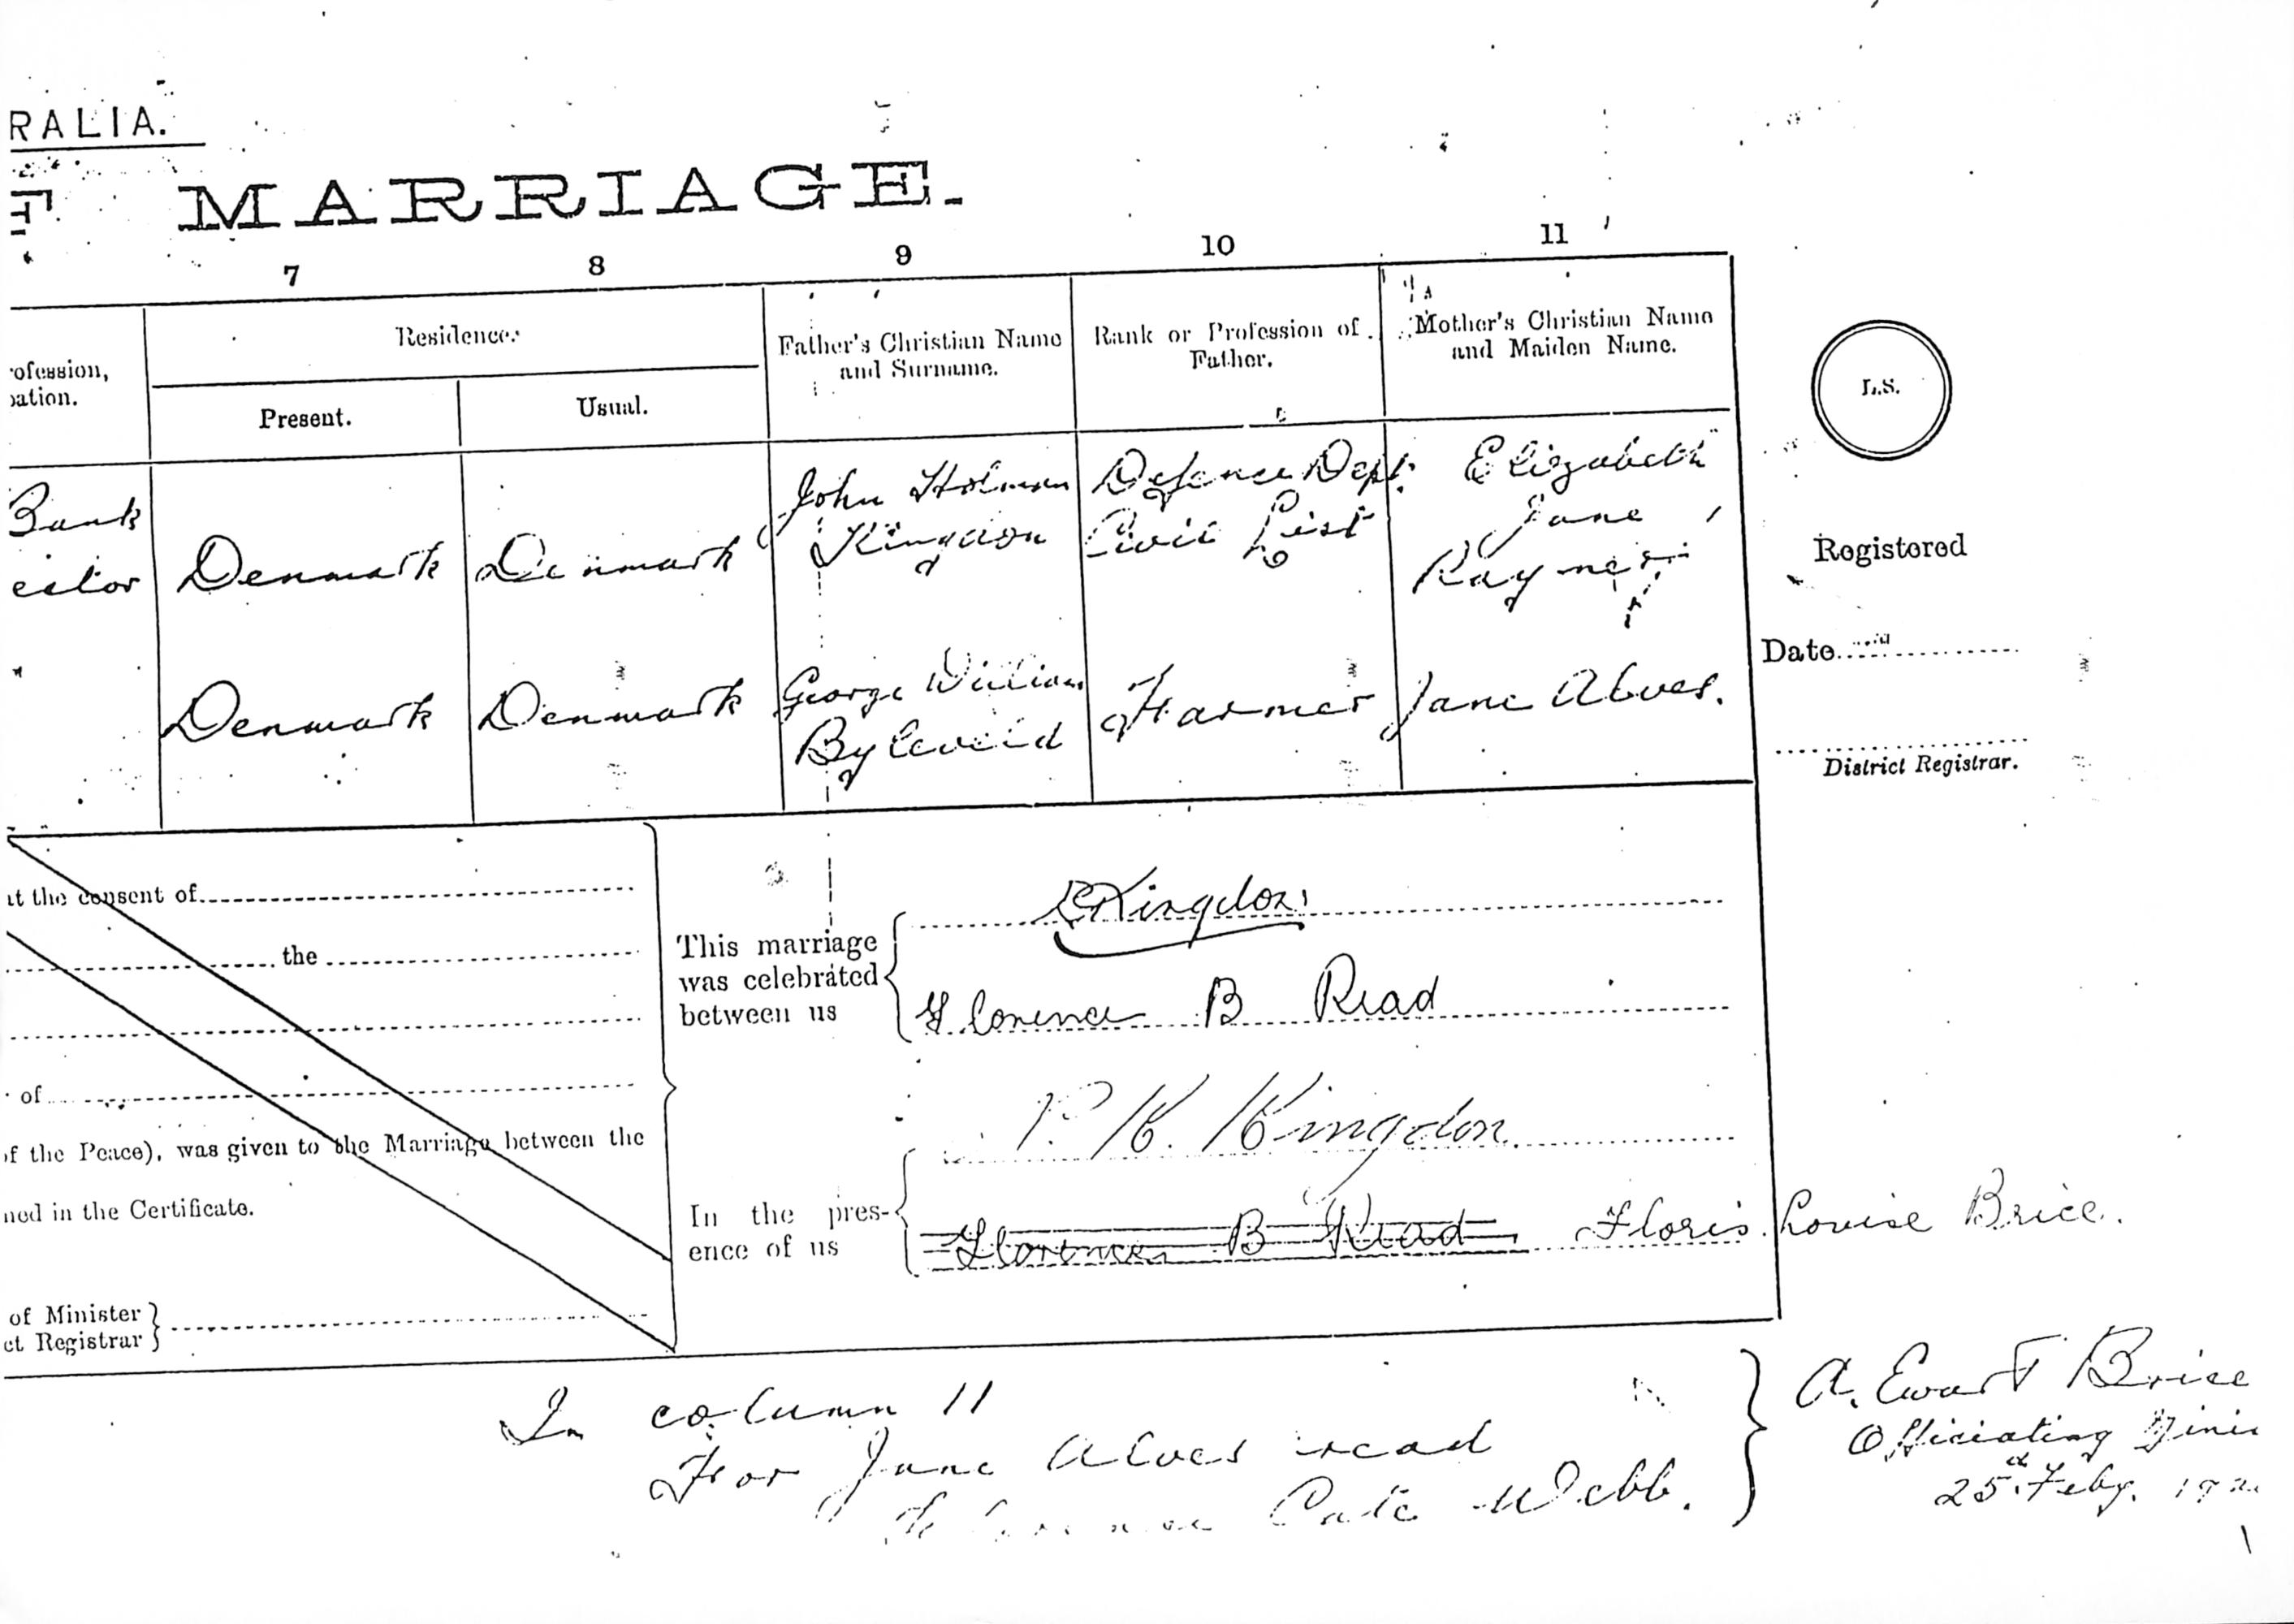 RALIA.
F MARRIAGE.
7 8 9 10 11
rofession,
pation.
Residence.
Present.
Usual.
Father's Christian Name
and Surname.
Rank or Profession of
Father.
Mother's Christian Name
and Maiden Name.
L.S.
Bank
ector
Denmark
Denmark
John Holman
Kingdon
Defence Dept.
Civil List
Elizabeth
Jane
Rayner
Denmark
Denmark
George William
Byleveld
Farmer
Jane Alves.
Registered
Date
District Registrar.
at the consent of
the
of
of the Peace), was given to the Marriage between the
ned in the Certificate.
of Minister
ct Registrar
This marriage
was celebrated
between us
Kingdon
Florence B Read
In the pres-
ence of us
P. K. Kingdon
Florence B Read Floris Louise Brice.
In column 11
For Jane Alves read
Cate Webb.
A. Ewart Brice
Officiating Minis
25th Feby. 192